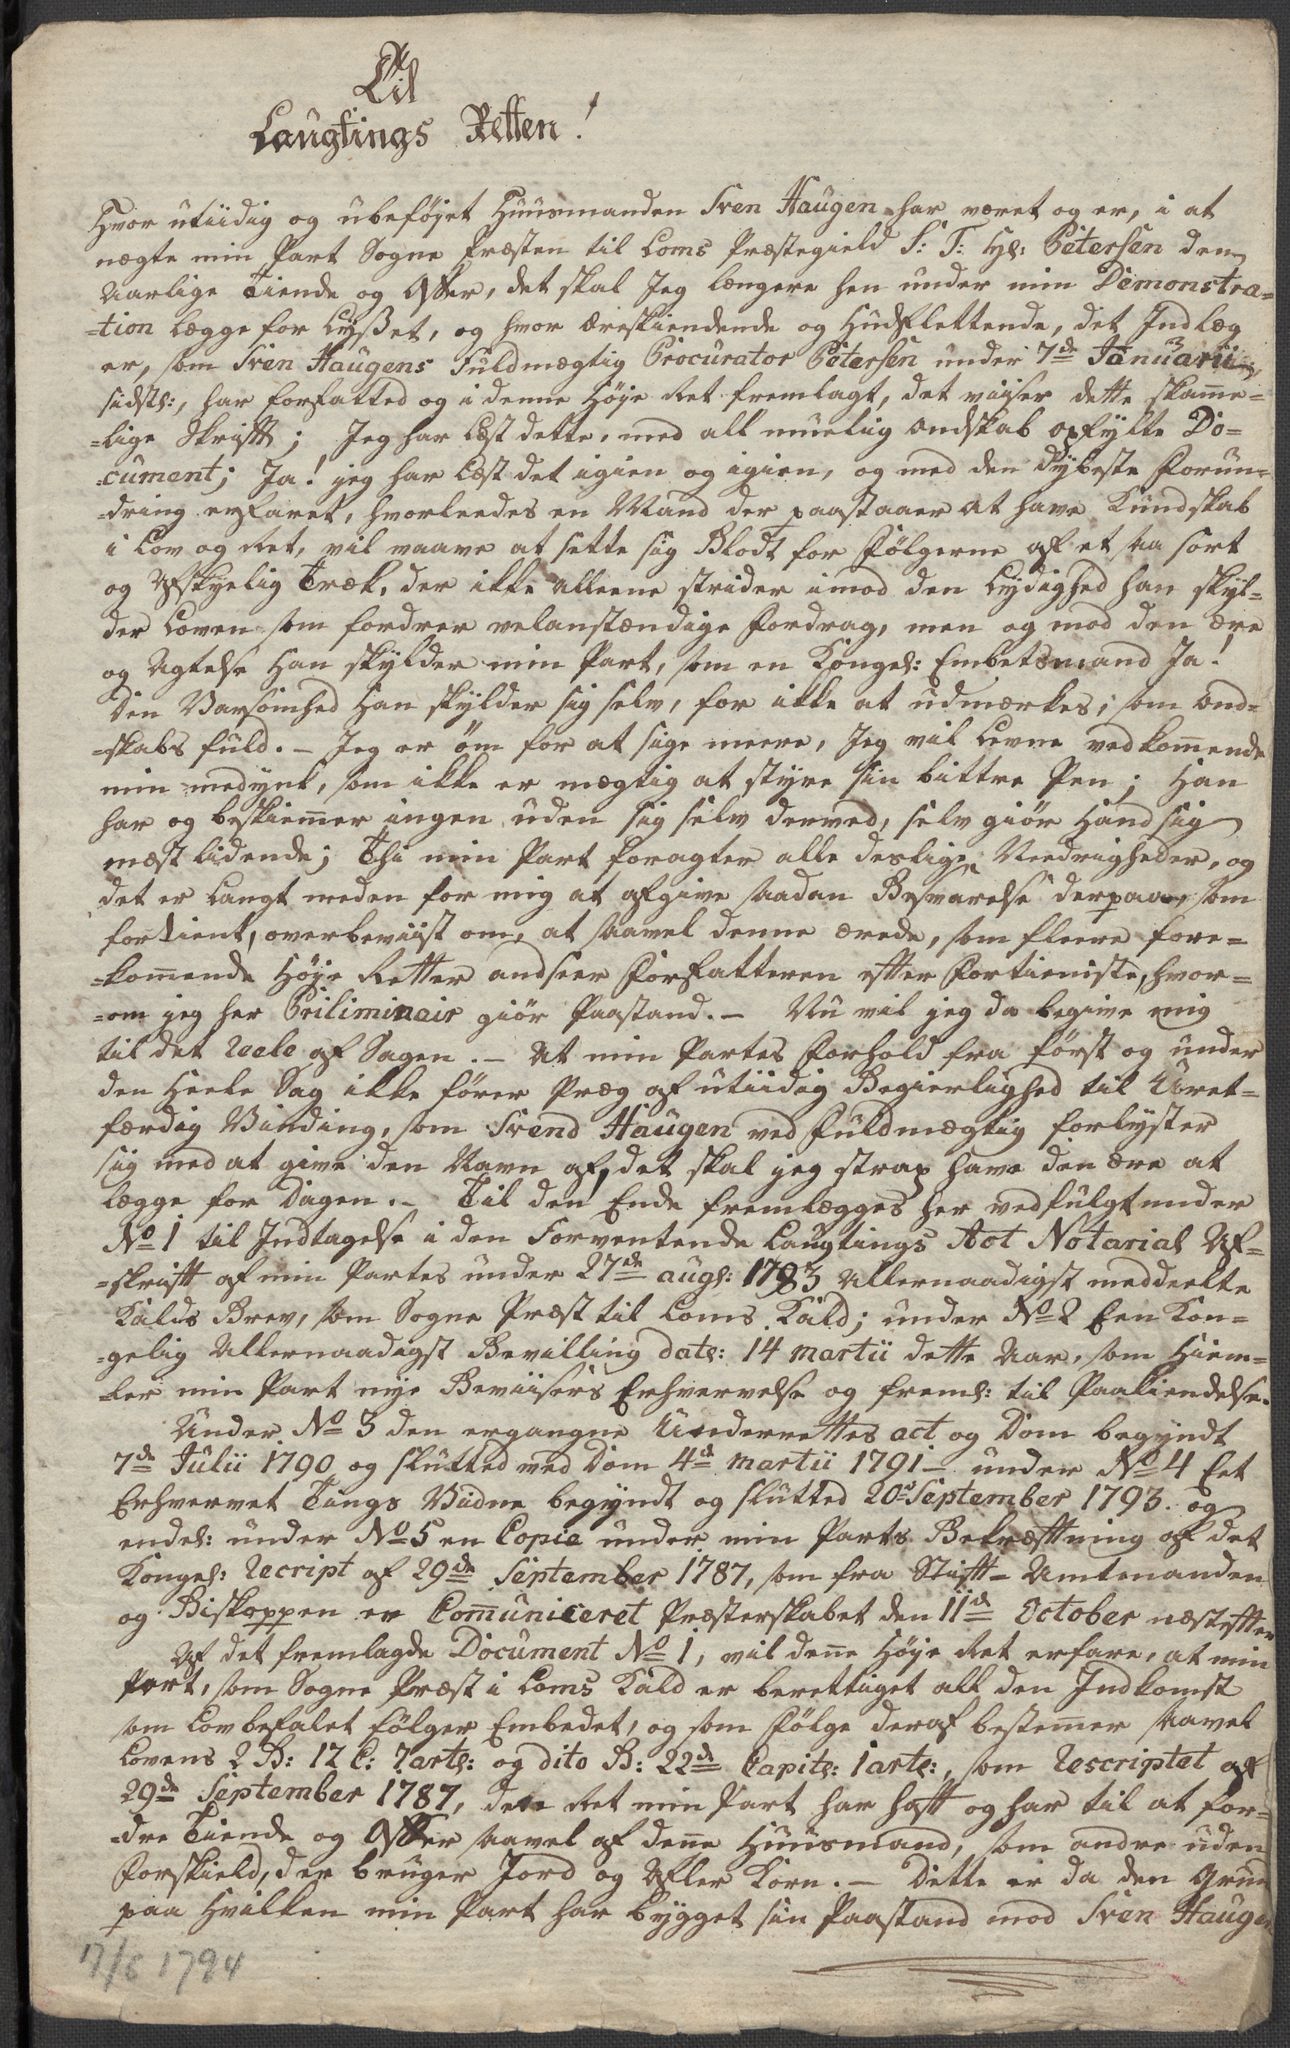 Til
Laugtings Retten!
Hvor utiidig og ubeføjet Huusmanden Sven Haugen har været og er, i at
nægte min Part Sogne Præsten til Loms Præstegield S: T: Hr: Petersen den
aarlige Tiende og Offer, det skal Jeg længere hen under min Demonstra=
=tion lægge for Lyset, og hvor ærestiendende og Hudflettende, det Indlæg
er, som Sven Haugens Fuldmægtig Procurator Petersen under 7de Januarii
sidstl:, har forfatted og i denne Høje Ret fremlagt, det viiser dette skam̄e=
=lige Skrift; Jeg har læst dette, med all muelig ondskab opfylte Do=
=cument; Ja! jeg har læst det igien og igien, og med den dybeste Forun=
=dring erfaret, hvorleedes en Mand der paastaaer at have Kundskab
i Lov og Ret, vil vaave at sette sig Blodt for Følgerne af et saa sort
og Afskyelig Træk, der ikke alleene strider imod den Lydighed han skyl=
der Loven som fordrer velanstændige Fordrag, men og mod den ære
og Agtelse Han skylder min Part, som en Kongel: Embetsmand Ja!
den Varsomhed Han skylder sig selv, for ikke at udmærkes, som ond=
=skabs fuld. – Jeg er øm for at sige meere, Jeg vil Levne vedkom̄ende
min medynk, som ikke er mægtig at styre sin bittre Pen; Han
har og beskiem̄er ingen uden sig selv derved, selv giør Hand sig
mæst lidende; Thi min Part foragter alle deslige Needrigheder, og
det er Langt neden for mig at afgive saadan Besvarelse derpaa, som
fortient, overbeviist om, at saavel denne ærede, som fleere fore=
=kom̄ende Høje Retter andseer Forfatteren efter Fortieniste, hvor=
=om jeg her Priliminair giør Paastand. – Nu vil jeg da begive mig
til det reele af Sagen. – At min Partes Forhold fra først og under
den Heele Sag ikke fører Præg af utiidig Begierlighed til Uret=
færdig Vinding, som Svend Haugen ved Fuldmægtig forlyster
sig med at give den Navn af, det skal jeg strax have den ære at
lægge for Dagen. – Til den Ende fremlægges her vedfulgt under
No 1 til Indtagelse i den Forventende Laugtings Act Notarial Af=
=skrift af min Partes under 27de augl: 1783 Allernaadigst meddeelte
Kalds Brev, som Sogne Præst til Loms Kald; under No 2 Een Kon=
=gelig Allernaadigst Bevilling datl: 14 martii dette Aar, som Hiem=
=ler min Part nye Beviisers Erhvervelse og freml: til Paakiendelse.
Under No 3 den ergangne Underrettes act og Dom begyndt
7de Julii 1790 og sluttet ved Dom 4de martii 1791 – under No 4 Eet
Erhvervet Tings Vidne begyndt og slutted 20de September 1793. og
endel: under No 5 en Copie under min Parts Bekræftning af det
Kongel: Recript af 29de September 1787, som fra Stift=Amtmanden
og Biskoppen er Com̄uniceret Præsterskabet den 11de October næstefter
Af det fremlagde Document No 1, vil den̄e Høje Ret erfare, at min
Part, som Sogne Præst i Loms Kald er berettiget all den Indkomst
som Lovbefalet følger Embedet, og som Følge deraf bestem̄er saavel
Lovens 2 B: 12 C: 7 artl: og dito B: 22de Capitl: 1 artl:, som Rescriptet af
29de September 1787, den Ret min Part har haft og har til at for=
=dre Tiende og Offer saavel af den̄e Huusmand, som andre uden
Forskield, der bruger Jord og Afler Korn. – Dette er da den Grun
paa Hvilken min Part har bygget sin Paastand mod Sven Haugen
17/6 1794